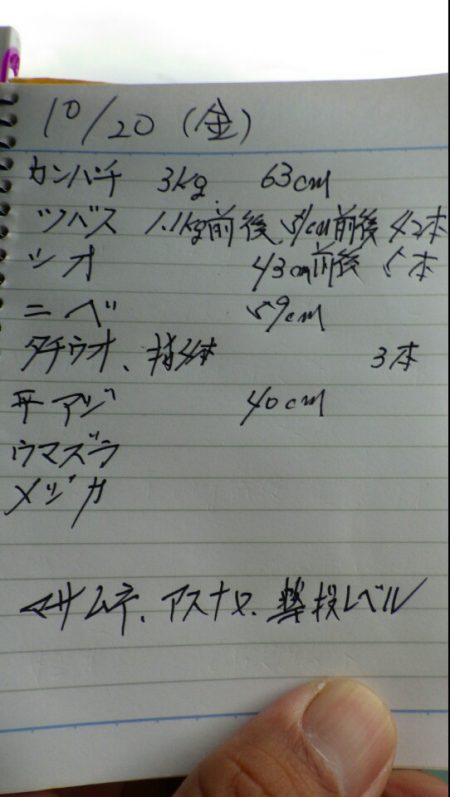 10/20 (金)
カンパチ 3kg. 63cm
ツバス 1.1kg前後、51cm前後 42本
シオ 43cm前後 5本
ニベ 59cm
タチウオ、 3本
平アジ 40cm
ウマズラ
メジカ
マサムネ、アスナロ、 投レベル